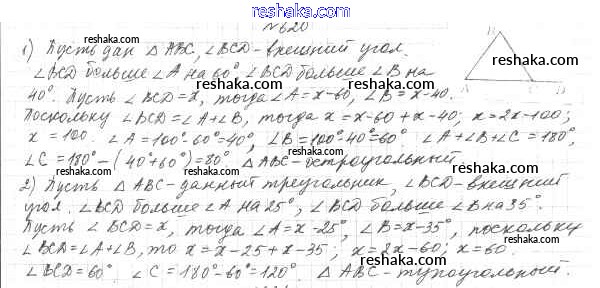 reshaka.com
№620
reshaka.com
1) Пусть дан △ABC, ∠BCD - внешний угол.
∠BCD больше ∠A на 60°, ∠BCD больше ∠B на
40°. Пусть ∠BCD = x, тогда ∠A = x-60, ∠B = x-40.
reshaka.com
Поскольку ∠BCD = ∠A + ∠B, тогда x = x-60 + x-40; x = 2x-100;
x = 100. ∠A = 100°-60° = 40°, ∠B = 100°-40° = 60°. ∠A + ∠B + ∠C = 180°,
reshaka.com
∠C = 180° - (40°+60°) = 80°. △ABC - остроугольный.
reshaka.com
2) Пусть △ABC - данный треугольник, ∠BCD - внешний
reshaka.com
угол. ∠BCD больше ∠A на 25°, ∠BCD больше ∠B на 35°.
reshaka.com
Пусть ∠BCD = x, тогда ∠A = x-25°, ∠B = x-35°, поскольку
∠BCD = ∠A + ∠B, то x = x-25 + x-35; x = 2x-60; x = 60.
reshaka.com
∠BCD = 60° ∠C = 180°-60° = 120°. △ABC - тупоугольный.
reshaka.com